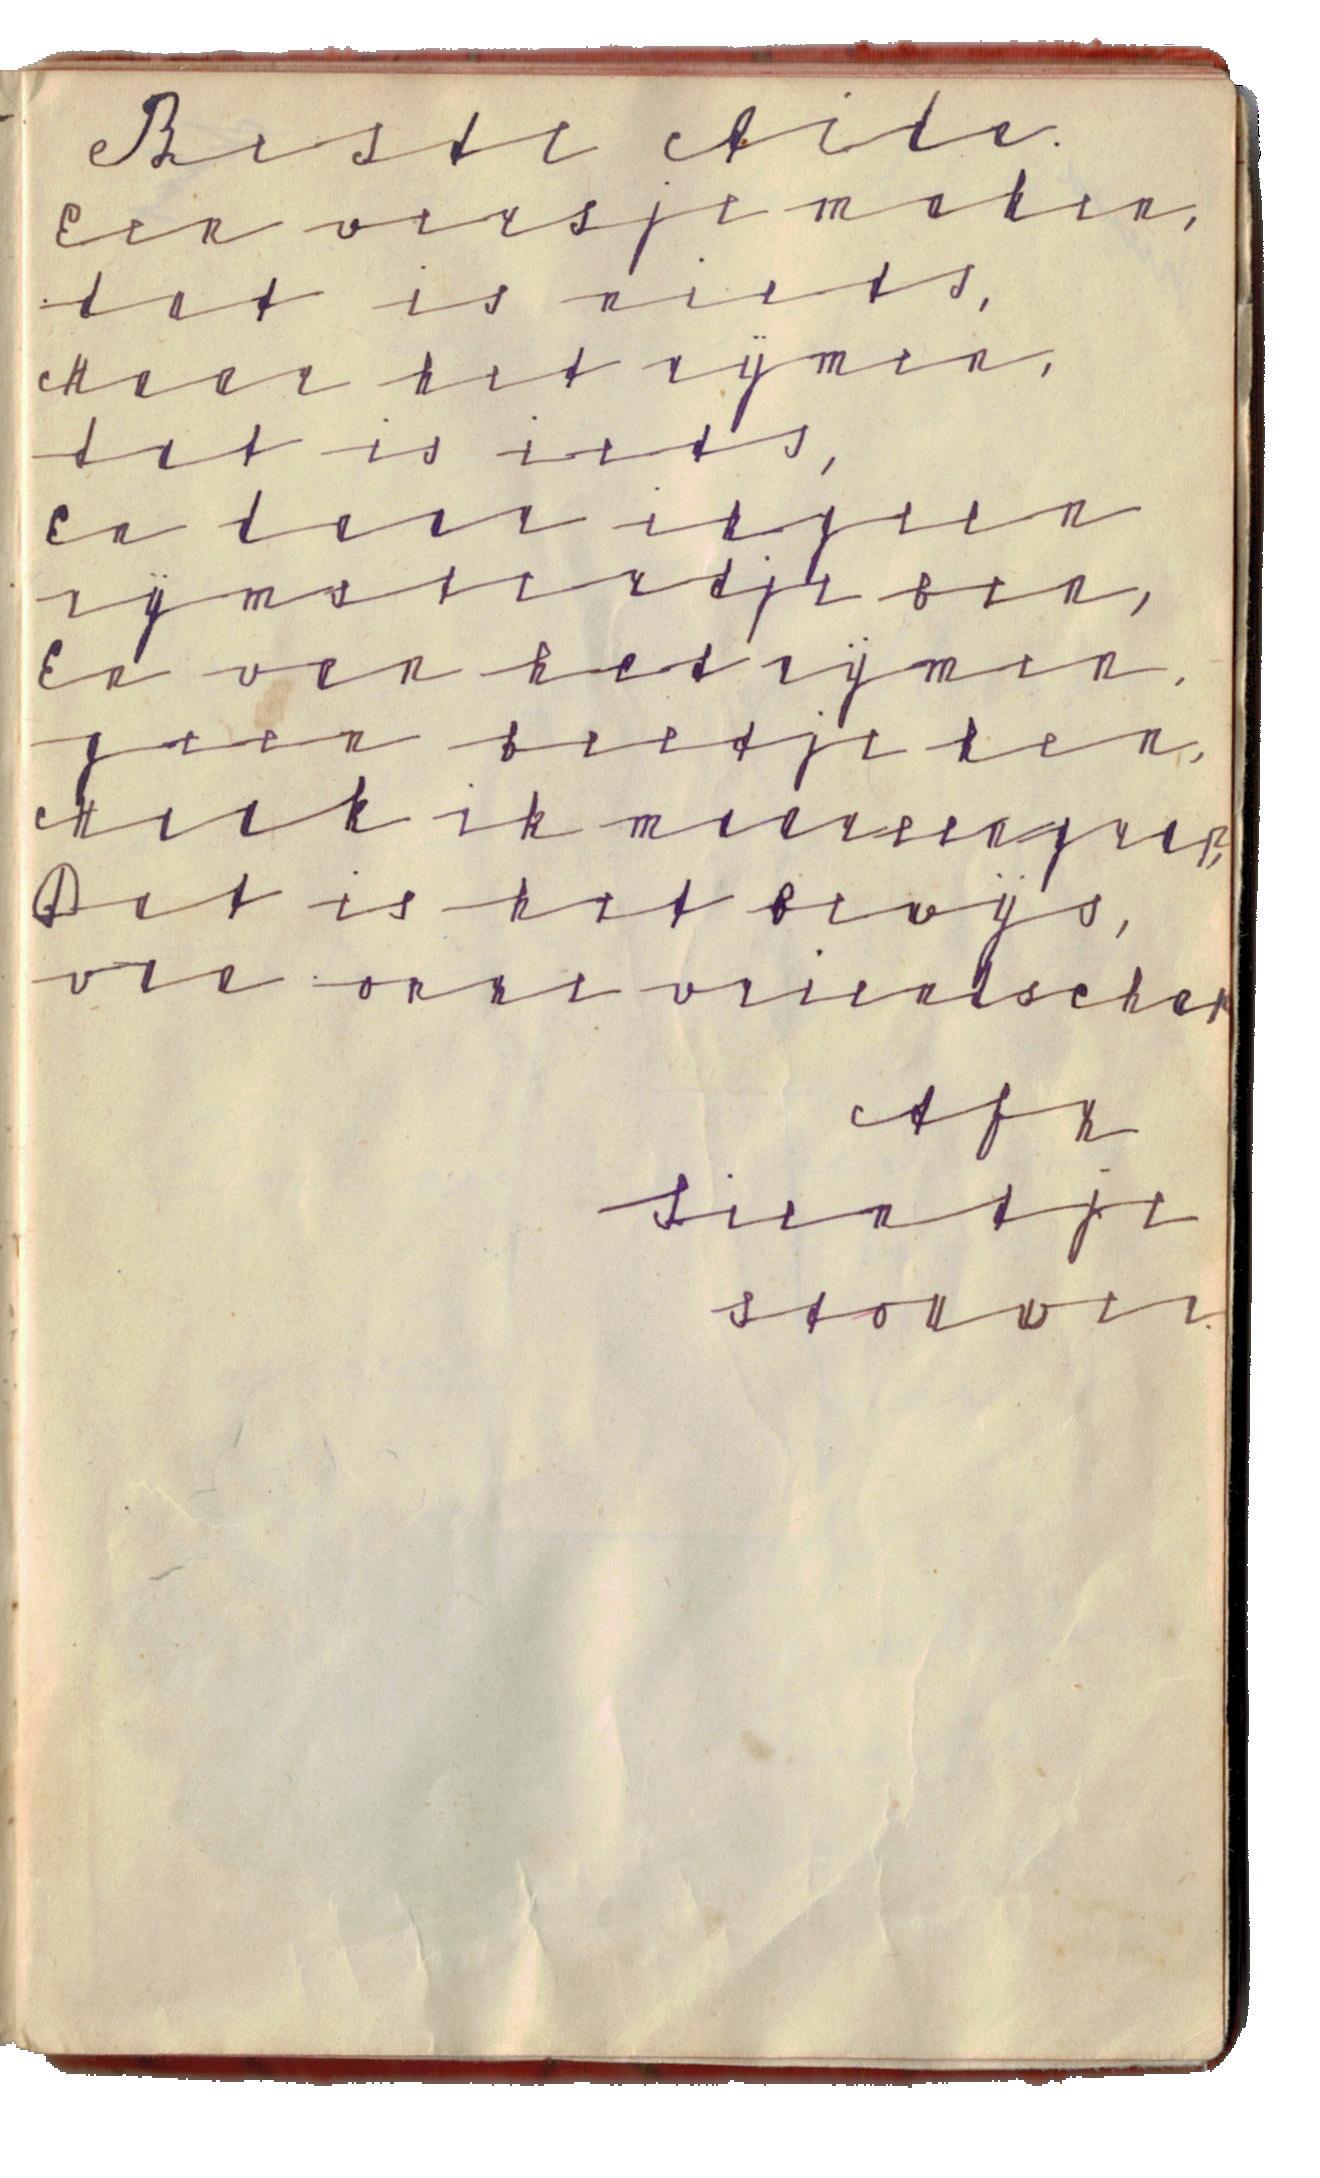 Beste Aide.
Een versje maken,
dat is niets,
Maar het rijmen,
dat is iets,
En daar ik geen
rijmstertje ben,
En van het rijmen.
geen beetje ken,
Maak ik maar een grap,
Dat is het bewijs,
van onze vriendschap
Afz
Sientje